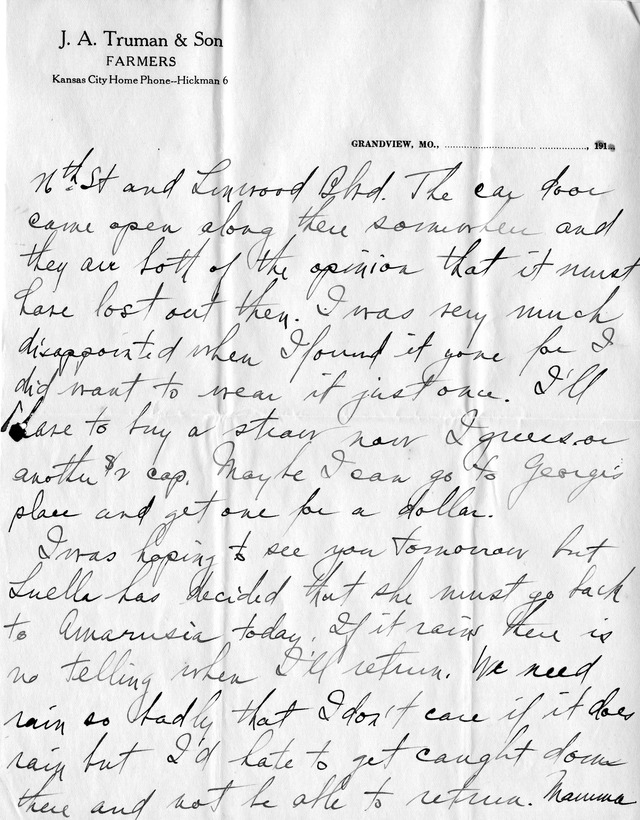 J. A. Truman & Son
FARMERS
Kansas City Home Phone--Hickman 6
GRANDVIEW, MO., , 191
St and Linwood Blvd. The car door
came open along there somewhere and
they are both of the opinion that it must
have lost out then. I was very much
disappointed when I found it gone for I
did want to wear it just once. I'll
have to buy a straw now I guess or
another $2 cap. Maybe I can go to George's
place and get one for a dollar.
I was hoping to see you tomorrow but
Luella has decided that she must go back
to Amarusia today. If it rains there is
no telling when I'll return. We need
rain so badly that I don't care if it does
rain but I'd hate to get caught down
there and not be able to return. Mamma